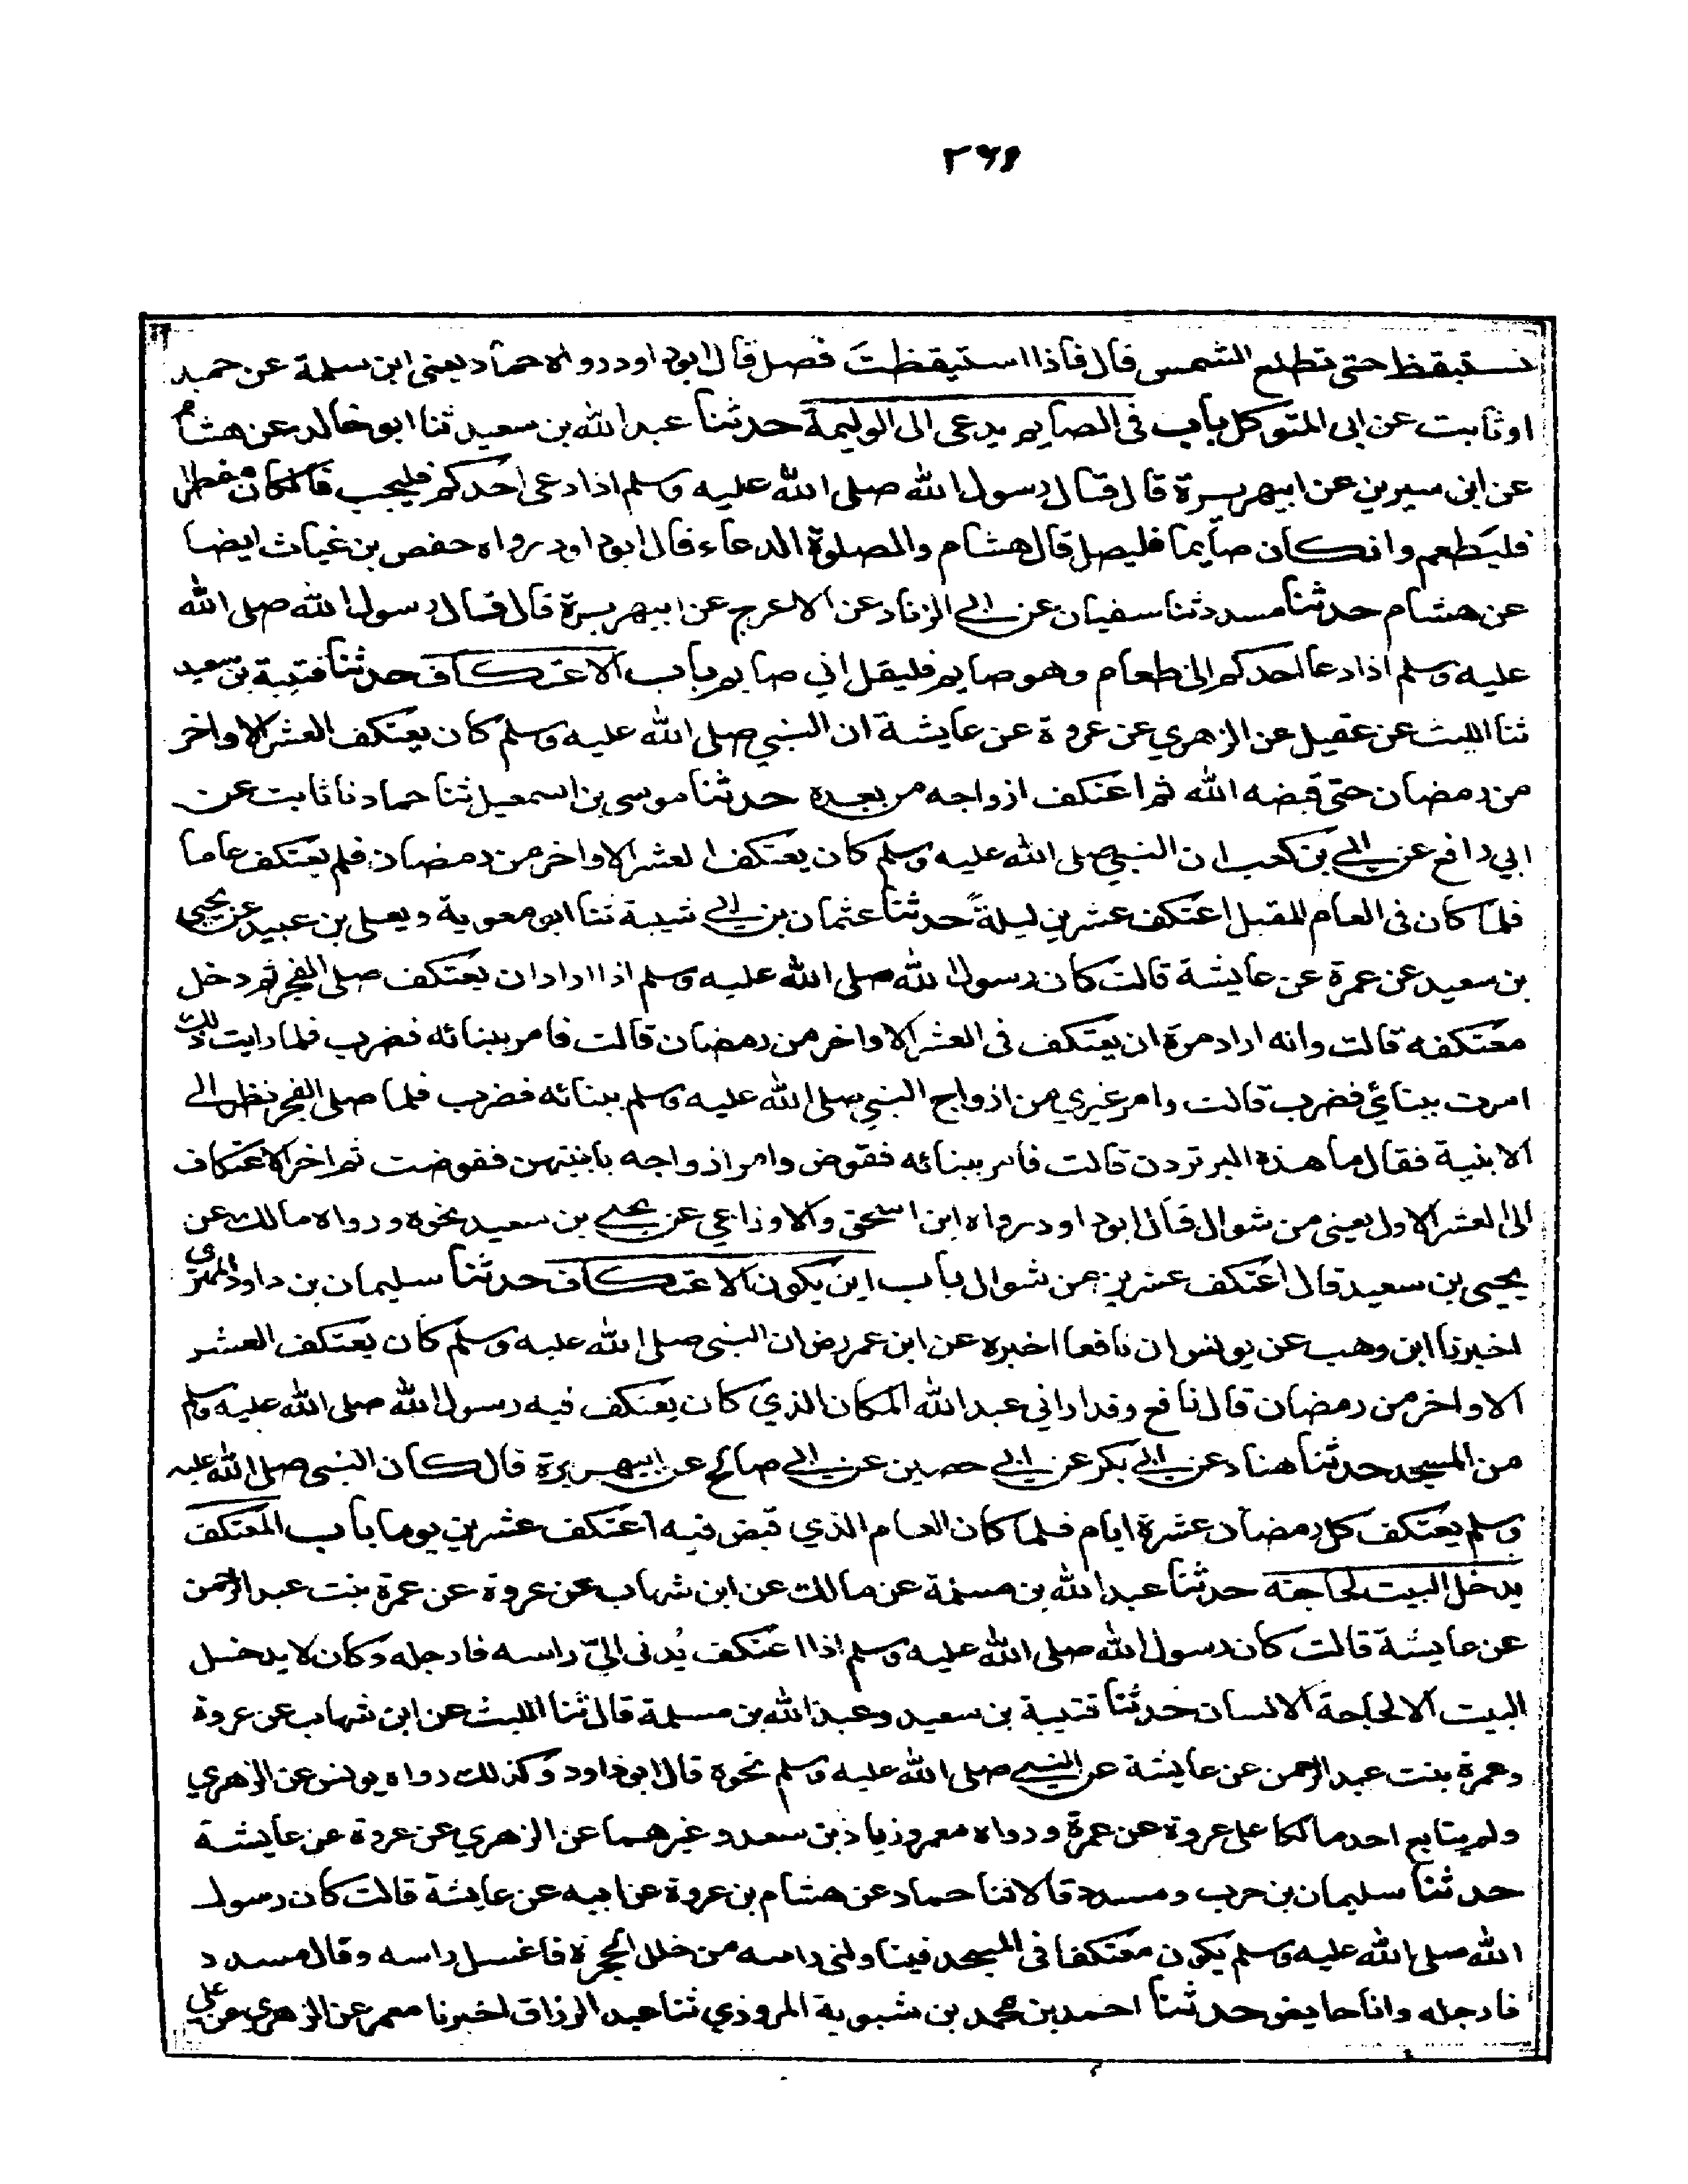 ٢٦٩
نستيقظ حتى تطلع الشمس قال فاذا استيقظت فصل قال ابو داود رواه حماد يعني ابن سلمة عن حميد
او ثابت عن ابي المتوكل باب في الصايم يدعى الى الوليمة حدثنا عبد الله بن سعيد ثنا ابو خالد عن هشام
عن ابن سيرين عن ابيهريرة قال قال رسول الله صلى الله عليه وسلم اذا دعى احدكم فليجب فانكان مفطرا
فليطعم وانكان صآيما فليصل قال هشام والصلوة الدعاء قال ابو داود رواه حفص بن غياث ايضا
عن هشام حدثنا مسدد ثنا سفيان عن ابي الزناد عن الاعرج عن ابيهريرة قال قال رسول الله صلى الله
عليه وسلم اذا دعا احدكم الى طعام وهو صايم فليقل اني صايم باب الاعتكاف حدثنا قتيبة بن سعيد
ثنا الليث عن عقيل عن الزهري عن عروة عن عايشة ان النبي صلى الله عليه وسلم كان يعتكف العشر الاواخر
من رمضان حتى قبضه الله ثم اعتكف ازواجه من بعده حدثنا موسى بن اسمعيل ثنا حماد نا ثابت عن
ابي رافع عن ابي بن كعب ان النبي صلى الله عليه وسلم كان يعتكف العشر الاواخر من رمضان فلم يعتكف عاما
فلما كان في العام المقبل اعتكف عشرين ليلةً حدثنا عثمان بن ابي شيبة ثنا ابو معوية ويعلى بن عبيد عن يحيى
بن سعيد عن عمرة عن عايشة قالت كان رسول الله صلى الله عليه وسلم اذا اراد ان يعتكف صلى الفجر ثم دخل
معتكفه قالت وانه اراد مرة ان يعتكف في العشر الاواخر من رمضان قالت فامر ببنائه فضرب فلما رايت ذلك
امرت ببنائي فضرب قالت وامر غيري من ازواج النبي صلى الله عليه وسلم ببنائه فضرب فلما صلى الفجر نظر الى
الابنية فقال ما هذه البر تردن قالت فامر ببنائه فقوض وامر ازواجه بابنيتهن فقوضت ثم اخر الاعتكاف
الى العشر الاول يعني من شوال قال ابو داود رواه ابن اسحق والاوزاعي عن يحيى بن سعيد نحوه ورواه مالك عن
يحيى بن سعيد قال اعتكف عشرين من شوال باب اين يكون الاعتكاف حدثنا سليمان بن داود المهري
اخبرنا ابن وهب عن يونس ان نافعا اخبره عن ابن عمر رض ان النبي صلى الله عليه وسلم كان يعتكف العشر
الاواخر من رمضان قال نافع وقد اراني عبد الله المكان الذي كان يعتكف فيه رسول الله صلى الله عليه وسلم
من المسجد حدثنا هناد عن ابي بكر عن ابي حصين عن ابي صالح عن ابيهريرة قال كان النبي صلى الله عليه
وسلم يعتكف كل رمضان عشرة ايام فلما كان العام الذي قبض فيه اعتكف عشرين يوما باب المعتكف
يدخل البيت لحاجته حدثنا عبد الله بن مسلمة عن مالك عن ابن شهاب عن عروة عن عمرة بنت عبد الرحمن
عن عايشة قالت كان رسول الله صلى الله عليه وسلم اذا اعتكف يُدنى اليّ راسه فارجله وكان لا يدخل
البيت الا لحاجة الانسان حدثنا قتيبة بن سعيد وعبد الله بن مسلمة قال ثنا الليث عن ابن شهاب عن عروة
وعمرة بنت عبد الرحمن عن عايشة عن النبي صلى الله عليه وسلم نحوه قال ابو داود وكذلك رواه يونس عن الزهري
ولم يتابع احد مالكا على عروة عن عمرة ورواه معمر وزياد بن سعد وغيرهما عن الزهري عن عروة عن عايشة
حدثنا سليمان بن حرب ومسدد قالا ثنا حماد عن هشام بن عروة عن ابيه عن عايشة قالت كان رسول
الله صلى الله عليه وسلم يكون معتكفا في المسجد فيناولني راسه من خلل الحجرة فاغسل راسه وقال مسدد
فارجله وانا حايض حدثنا احمد بن محمد بن شبوية المروذي ثنا عبد الرزاق اخبرنا معمر عن الزهري عن علي